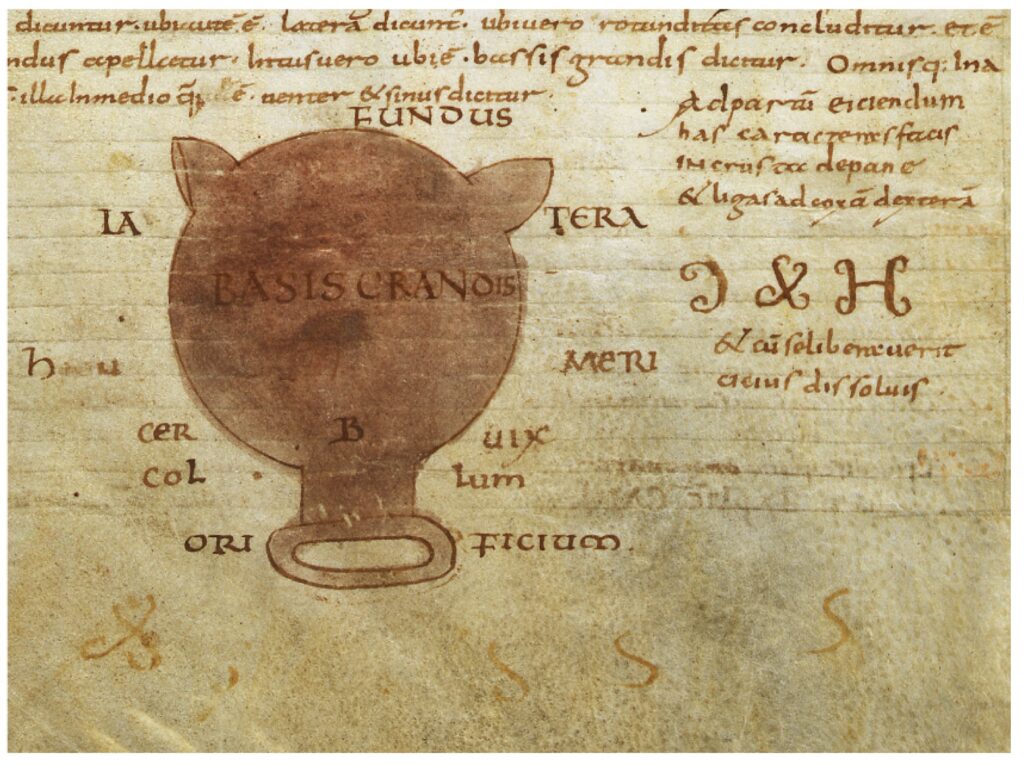 dicuntur. ubi cute ē. laterā dicunt. ubi vero rotunditas concluditur. et ē
ndus apellatur. Intus vero ubi ē. bassis grandis dicitur. Omnisq: Ina
illa In medio ē. venter & sinus dicitur.
FUNDUS
Ad partū eiciendum
has caracteres facis
IN crusta de pane
& ligas ad coxā dexterā
LA TERA
BASIS GRANDIS
Ɔ & H
& cū se liberaverit
citius dissoluis.
h u MERI
CER B UIX
COL lum
ORI FICIUM.